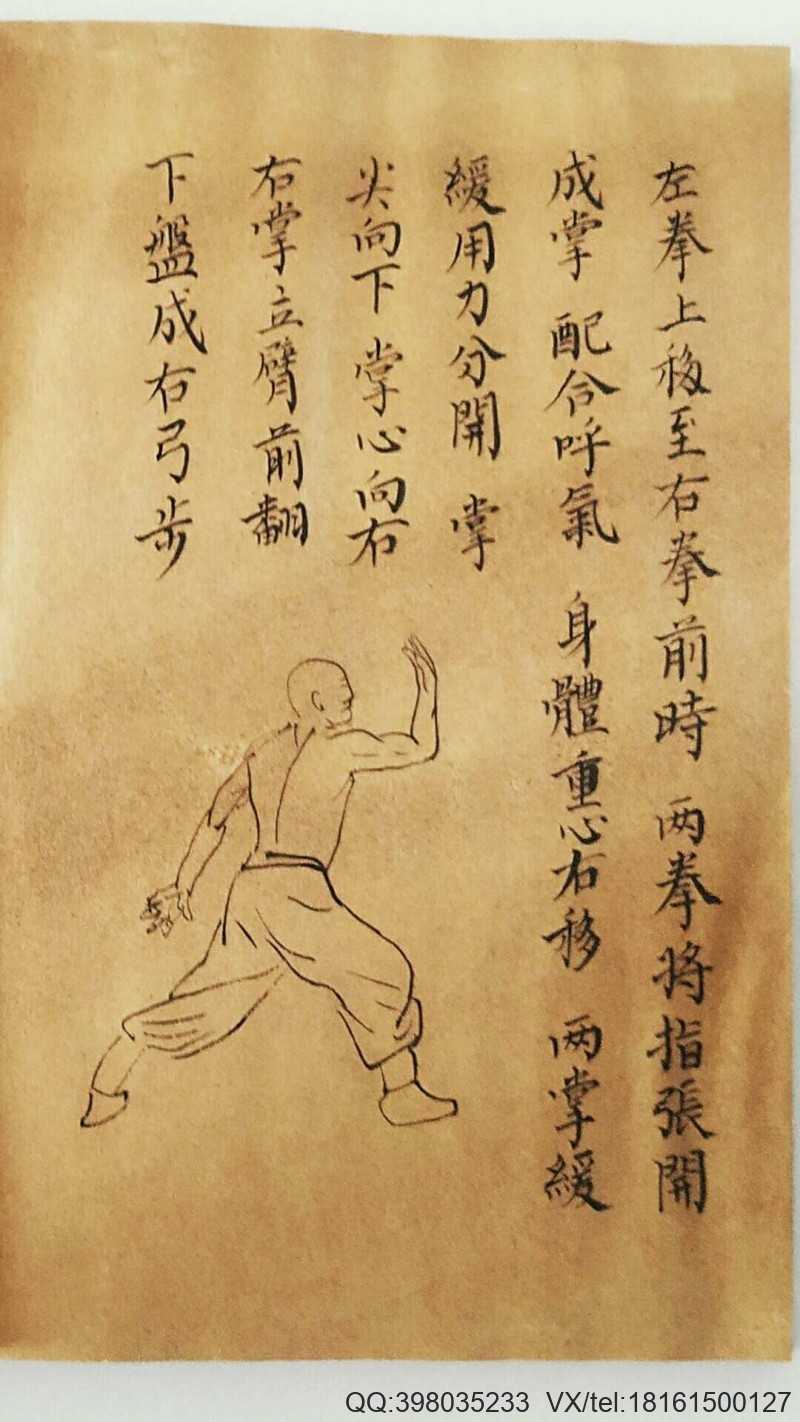 左拳上移至右拳前時 两拳将指張開
成掌 配合呼氣 身體重心右移 两掌緩
緩用力分開 掌
尖向下 掌心向右
右掌立臂前翻
下盤成右弓步
QQ:398035233 VX/tel:18161500127